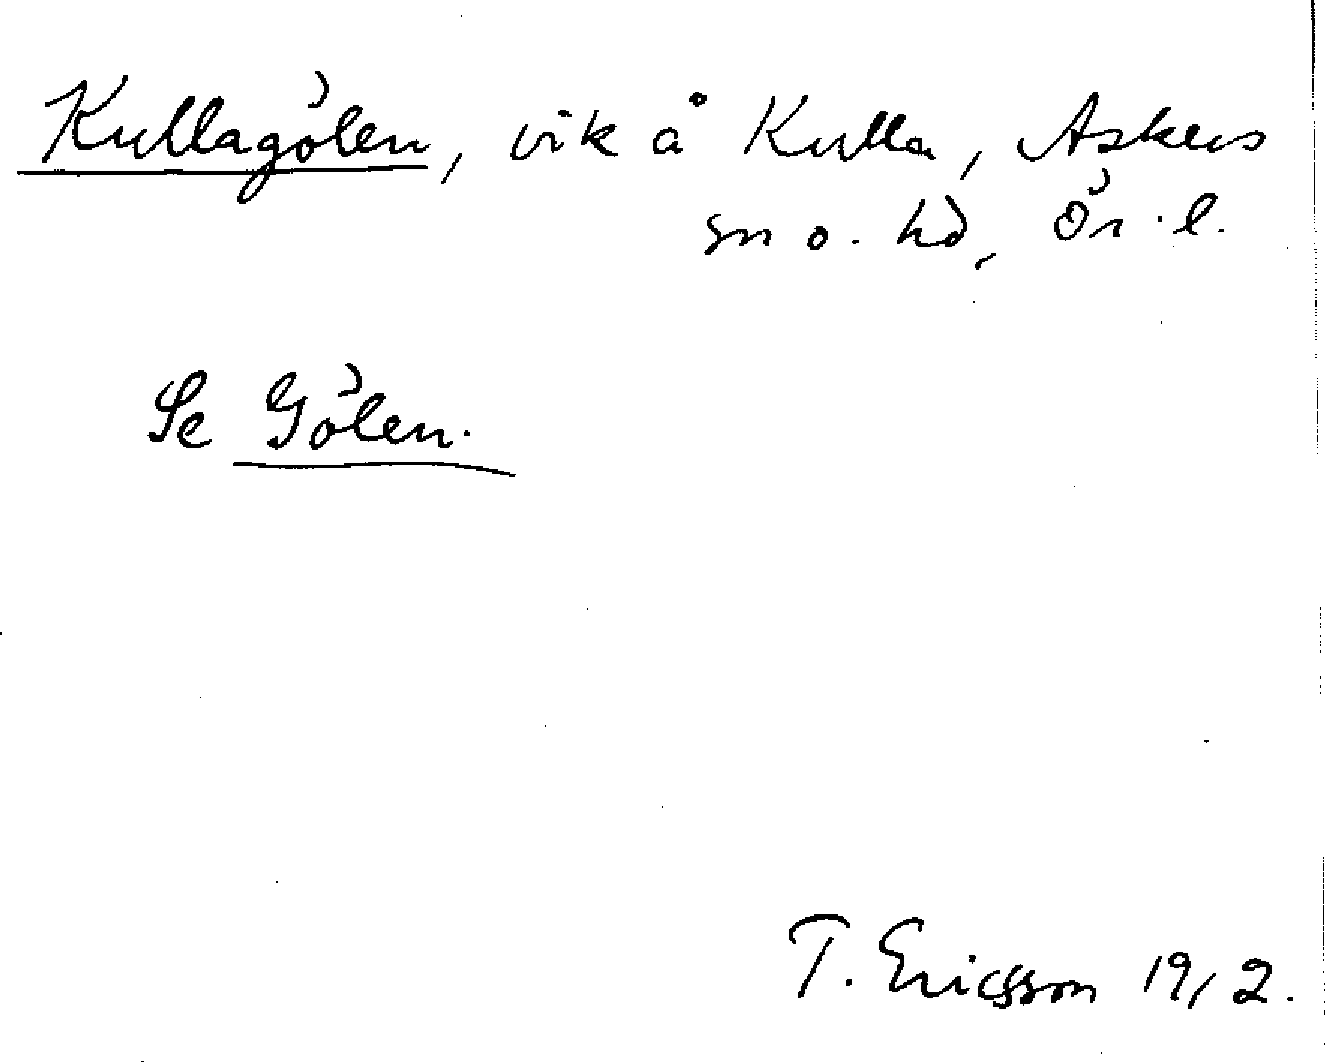 Kullagölen, vik å Kulla, Askers
sn o. hd, Ör. l.
Se Gölen.
T. Ericsson 1912.